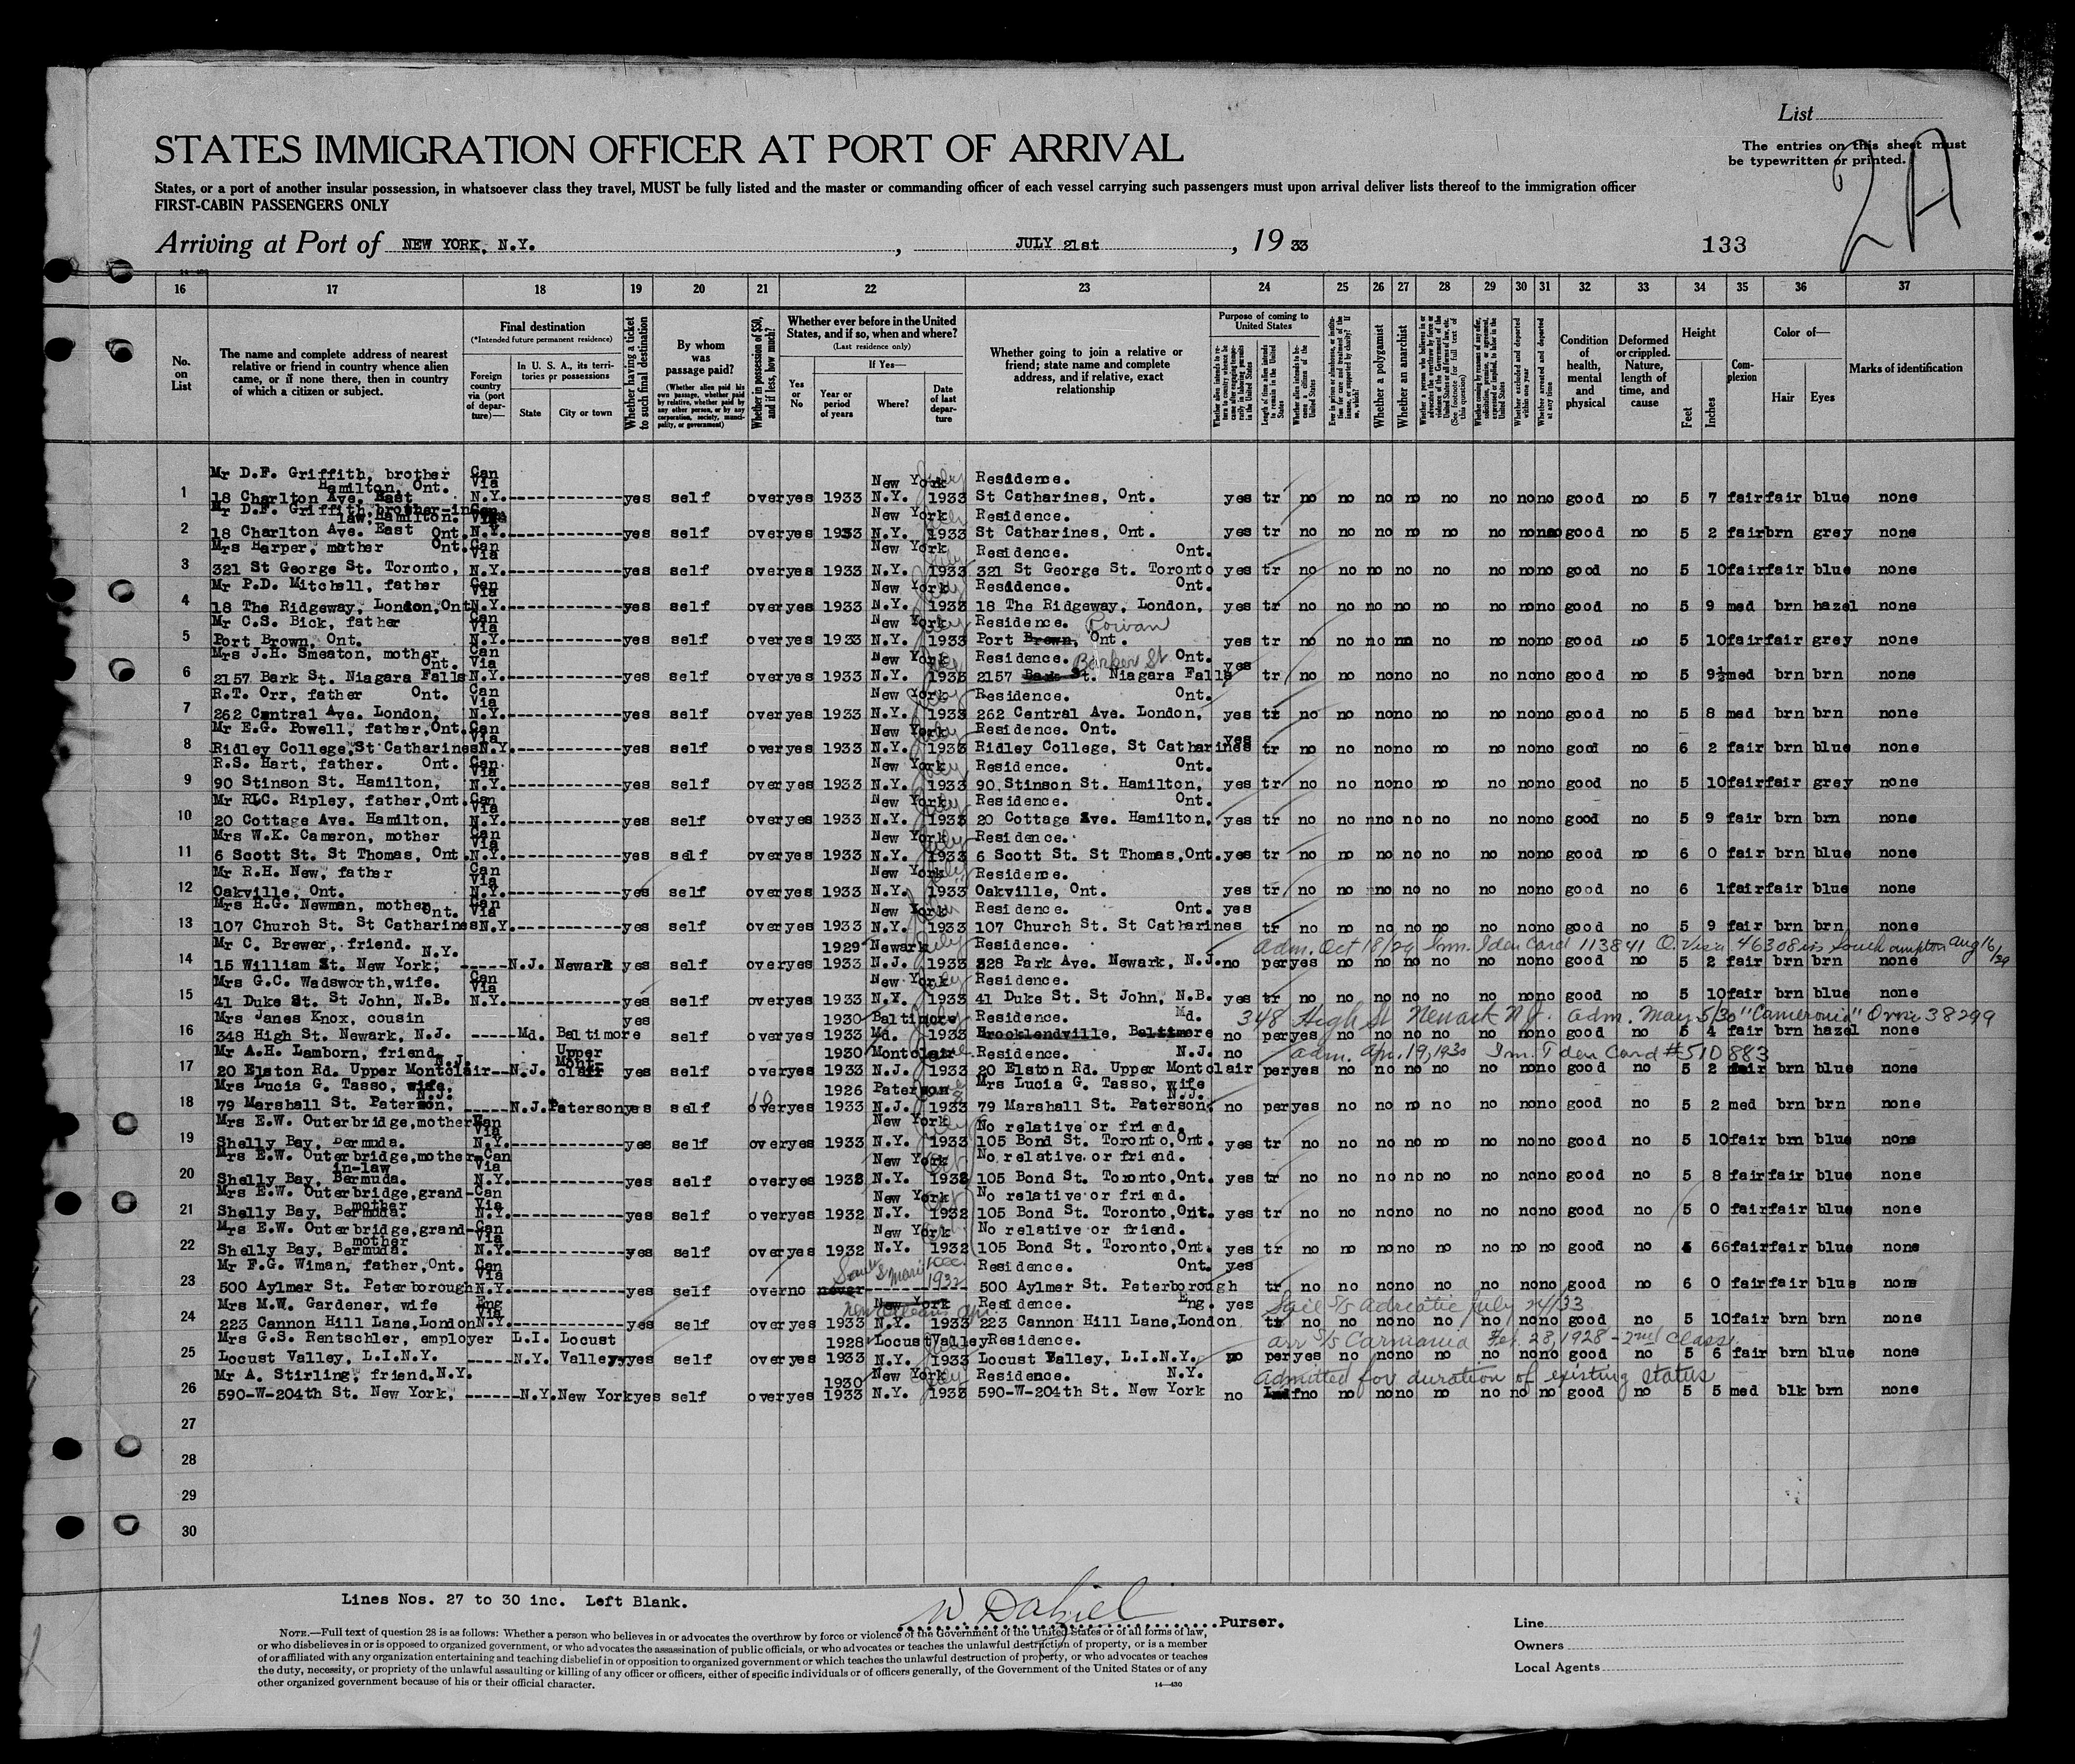 List
STATES IMMIGRATION OFFICER AT PORT OF ARRIVAL
The entries on this sheet must
be typewritten or printed.
2A
States, or a port of another insular possession, in whatsoever class they travel, MUST be fully listed and the master or commanding officer of each vessel carrying such passengers must upon arrival deliver lists thereof to the immigration officer
FIRST-CABIN PASSENGERS ONLY
Arriving at Port of NEW YORK, N.Y. , JULY 21st , 19 33
133
16 17 18 19 20 21 22 23 24 25 26 27 28 29 30 31 32 33 34 35 36 37
No. on List
The name and complete address of nearest relative or friend in country whence alien came, or if none there, then in country of which a citizen or subject.
Final destination
(*Intended future permanent residence)
Foreign country via (port of departure)—
In U. S. A., its territories or possessions
State City or town
Whether having a ticket to such final destination
By whom was passage paid?
(Whether alien paid his own passage, whether paid by relative, whether paid by any other person, or by any corporation, society, municipality, or government)
Whether in possession of $50, and if less, how much?
Whether ever before in the United States, and if so, when and where?
(Last residence only)
Yes or No
If Yes—
Year or period of years
Where?
Date of last departure
Whether going to join a relative or friend; state name and complete address, and if relative, exact relationship
Purpose of coming to United States
Length of time alien intends to remain in the United States
Whether alien intends to become a citizen of the United States
Whether a polygamist
Whether an anarchist
Whether excluded and deported within one year
Whether arrested and deported at any time
Condition of health, mental and physical
Deformed or crippled. Nature, length of time, and cause
Height
Feet Inches
Complexion
Color of—
Hair Eyes
Marks of identification
Mr D.F. Griffith, brother Can Via New York July Residence.
Hamilton, Ont.
1 18 Charlton Ave. East N.Y. yes self over yes 1933 N.Y. 1933 St Catharines, Ont. yes tr no no no no no no no no good no 5 7 fair fair blue none
Mr D.F. Griffith brother-in- Can Via New York Residence.
law, Hamilton.
2 18 Charlton Ave. East Ont. N.Y. yes self over yes 1933 N.Y. 1933 St Catharines, Ont. yes tr no no no no no no no no good no 5 2 fair brn grey none
Mrs Harper, mother Ont. Can Via New York Residence. Ont.
3 321 St George St. Toronto, N.Y. yes self over yes 1933 N.Y. 1933 321 St George St. Toronto yes tr no no no no no no no no good no 5 10 fair fair blue none
Mr P.D. Mitchell, father Can Via New York Residence. Ont.
4 18 The Ridgeway, London, Ont N.Y. yes self over yes 1933 N.Y. 1933 18 The Ridgeway, London, yes tr no no no no no no no no good no 5 9 med brn hazel none
Mr C.S. Bick, father Can Via New York Residence. Rowan
5 Port Brown, Ont. N.Y. yes self over yes 1933 N.Y. 1933 Port Brown, Ont. yes tr no no no no no no no no good no 5 10 fair fair grey none
Mrs J.H. Smeaton, mother Ont. Can Via New York Residence. Barker St Ont.
6 2157 Bark St. Niagara Falls N.Y. yes self over yes 1933 N.Y. 1933 2157 Bark St. Niagara Falls yes tr no no no no no no no no good no 5 9½ med brn brn none
R.T. Orr, father Ont. Can Via New York Residence. Ont.
7 262 Central Ave. London, N.Y. yes self over yes 1933 N.Y. 1933 262 Central Ave. London, yes tr no no no no no no no no good no 5 8 med brn brn none
Mr E.G. Powell, father, Ont. Can Via New York Residence. Ont.
8 Ridley College, St Catharines N.Y. yes self over yes 1933 N.Y. 1933 Ridley College, St Catharines yes tr no no no no no no no no good no 6 2 fair brn blue none
R.S. Hart, father. Ont. Can Via New York Residence. Ont.
9 90 Stinson St. Hamilton, N.Y. yes self over yes 1933 N.Y. 1933 90 Stinson St. Hamilton, yes tr no no no no no no no no good no 5 10 fair fair grey none
Mr R.C. Ripley, father, Ont. Can Via New York Residence. Ont.
10 20 Cottage Ave. Hamilton, N.Y. yes self over yes 1933 N.Y. 1933 20 Cottage Ave. Hamilton, yes tr no no no no no no no no good no 5 9 fair brn brn none
Mrs W.K. Cameron, mother Can Via New York Residence.
11 6 Scott St. St Thomas, Ont. N.Y. yes self over yes 1933 N.Y. 1933 6 Scott St. St Thomas, Ont. yes tr no no no no no no no no good no 6 0 fair brn blue none
Mr R.H. New, father Can Via New York Residence.
12 Oakville, Ont. N.Y. yes self over yes 1933 N.Y. 1933 Oakville, Ont. yes tr no no no no no no no no good no 6 1 fair fair blue none
Mrs H.G. Newman, mother Ont. Can Via New York Residence. Ont. yes
13 107 Church St. St Catharines N.Y. yes self over yes 1933 N.Y. 1933 107 Church St. St Catharines tr no no no no no no no no good no 5 9 fair brn brn none
Mr C. Brewer, friend. N.Y. 1929 Newark July Residence. Adm. Oct 18/29 Imm. Iden Card 113841 Q. Visa 46308 iss Southampton Aug 16/29
14 15 William St. New York; N.J. Newark yes self over yes 1933 N.J. 1933 328 Park Ave. Newark, N.J. no per yes no no no no no no no good no 5 2 fair brn brn none
Mrs G.C. Wadsworth, wife. Can Via New York Residence.
15 41 Duke St. St John, N.B. N.Y. yes self over yes 1933 N.Y. 1933 41 Duke St. St John, N.B. yes tr no no no no no no no no good no 5 10 fair brn blue none
Mrs Janes Knox, cousin yes 1930 Baltimore Residence. Md. 348 High St Newark N.J. adm. May 5/30 "Cameronia" Q visa 38299
16 348 High St. Newark, N.J. Md. Baltimore self over yes 1933 Md. 1933 Brocklendville, Baltimore no per yes no no no no no no no good no 5 4 fair brn hazel none
Mr A.H. Lamborn, friend. N.J. Upper Mont- 1930 Montclair Residence. N.J. no adm. Apr. 19, 1930 Im. Iden Card #510883
17 20 Elston Rd. Upper Montclair N.J. clair yes self over yes 1933 N.J. 1933 20 Elston Rd. Upper Montclair per yes no no no no no no no good no 5 2 fair brn blue none
Mrs Lucia G. Tasso, wife. N.J. 1926 Paterson Mrs Lucia G. Tasso, wife N.J.
18 79 Marshall St. Paterson, N.J. Paterson yes self 10 over yes 1933 N.J. 1933 79 Marshall St. Paterson, no per yes no no no no no no no good no 5 2 med brn brn none
Mrs E.W. Outerbridge, mother Can Via New York No relative or friend.
19 Shelly Bay, Bermuda. N.Y. yes self over yes 1933 N.Y. 1933 105 Bond St. Toronto, Ont. yes tr no no no no no no no no good no 5 10 fair brn blue none
Mrs E.W. Outerbridge, mother- Can Via New York No relative or friend.
in-law
20 Shelly Bay, Bermuda. N.Y. yes self over yes 1932 N.Y. 1932 105 Bond St. Toronto, Ont. yes tr no no no no no no no no good no 5 8 fair fair blue none
Mrs E.W. Outerbridge, grand- Can Via New York No relative or friend.
mother
21 Shelly Bay, Bermuda. N.Y. yes self over yes 1932 N.Y. 1932 105 Bond St. Toronto, Ont. yes tr no no no no no no no no good no 5 0 fair fair blue none
Mrs E.W. Outerbridge, grand- Can Via New York No relative or friend.
mother
22 Shelly Bay, Bermuda. N.Y. yes self over yes 1932 N.Y. 1932 105 Bond St. Toronto, Ont. yes tr no no no no no no no no good no 4 6 fair fair blue none
Mr F.G. Wiman, father, Ont. Can Via Sault S Marie Dec. 1932 Residence. Ont. yes
23 500 Aylmer St. Peterborough N.Y. yes self over no never 500 Aylmer St. Peterborough tr no no no no no no no no good no 6 0 fair fair blue none
Mrs M.W. Gardener, wife Eng Via New York New Orleans Residence. Eng. yes Sail S/S Adriatic July 24/33
24 223 Cannon Hill Lane, London N.Y. yes self over yes 1933 N.Y. 1933 223 Cannon Hill Lane, London tr no no no no no no no no good no 5 10 fair brn brn none
Mrs G.S. Rentschler, employer L.I. Locust 1928 Locust Valley Residence. arr S/S Carmania Feb. 28, 1928 - 2nd Class.
25 Locust Valley, L.I.N.Y. N.Y. Valley yes self over yes 1933 N.Y. 1933 Locust Valley, L.I.N.Y. no per yes no no no no no no no good no 5 6 fair brn blue none
Mr A. Stirling, friend. N.Y. 1930 New York Residence. N.Y. Admitted for duration of existing status
26 590-W-204th St. New York, N.Y. New York yes self over yes 1933 N.Y. 1933 590-W-204th St. New York no Indf no no no no no no no no good no 5 5 med blk brn none
27
28
29
30
Lines Nos. 27 to 30 inc. Left Blank.
Purser.
NOTE.—Full text of question 28 is as follows: Whether a person who believes in or advocates the overthrow by force or violence of the Government of the United States or of all forms of law,
or who disbelieves in or is opposed to organized government, or who advocates the assassination of public officials, or who advocates or teaches the unlawful destruction of property, or is a member
of or affiliated with any organization entertaining and teaching disbelief in or opposition to organized government or which teaches the unlawful destruction of property, or who advocates or teaches
the duty, necessity, or propriety of the unlawful assaulting or killing of any officer or officers, either of specific individuals or of officers generally, of the Government of the United States or of any
other organized government because of his or their official character.
14—430
Line
Owners
Local Agents